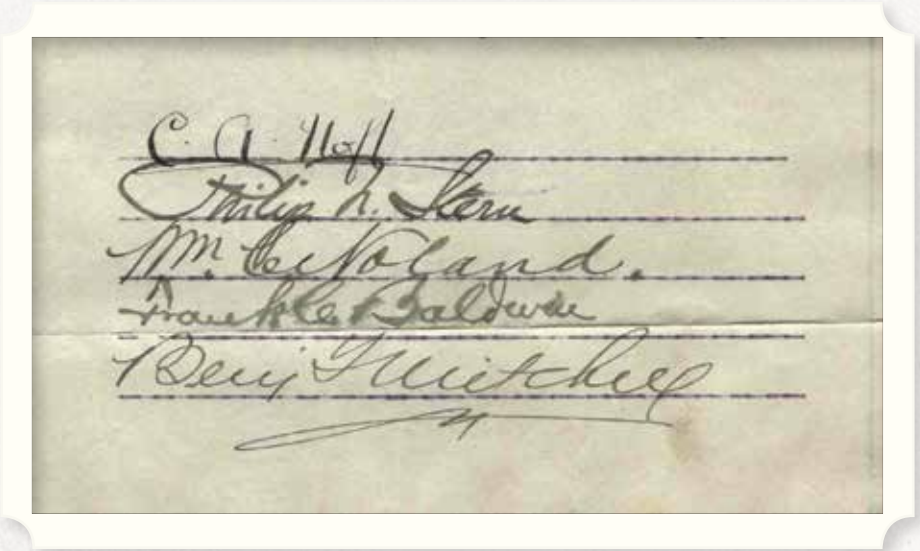 C. A. Hoff
Philip N. Stern
Wm. C. Noland.
Frank C. Baldwin
Benj F Mitchell